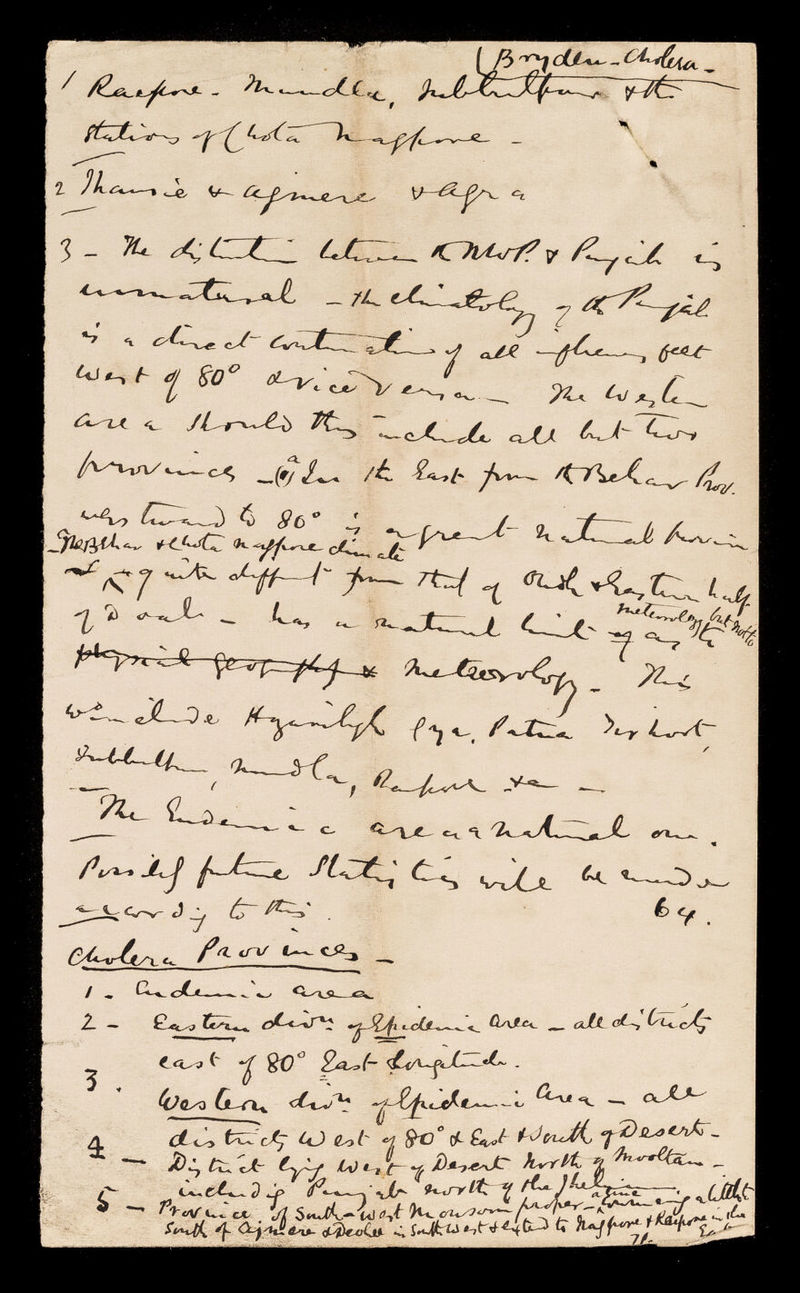 (Bryden - Cholera -
1 Raepore - Mundla, Jubbulpoor & the
stations of Chota Nagpore -
2 Jhansie & Ajmere & Agra
3 - The distinction between the NWP. & Punjab is
unnatural - the climatology of the Punjab
is a direct continuation of all influences felt
west of 80° & vice versa - The Western
area should thus include all but two
provinces - (a) In the East from the Behar Prov.
westward to 80° is a great natural province
- The Behar & Chota Nagpore climate
quite different from that of Oudh & Eastern half
of Doab - has a natural limit as to
meteorology but not to
physical geography & Meteorology - This
wd include Hazaribagh Gya, Patna Tirhoot,
Jubbulpur, Mundla, Raepore &c -
The Endemic area a natural one.
Possibly future Statistics will be under
according to this. 64.
Cholera Provinces -
1 - Endemic area
2 - Eastern divn of Epidemic Area - all districts
east of 80° East Longitude.
3. Western divn of Epidemic Area - all
districts West of 80° & East & South of Desert -
4 - District lying West of Desert North of Mooltan -
including Punjab north of the Jhelum
5 - Province of South-West Monsoon proper - a little
south of Ajmere & Deolee in South West & extend to Nagpore & Raepore in the
East
71.